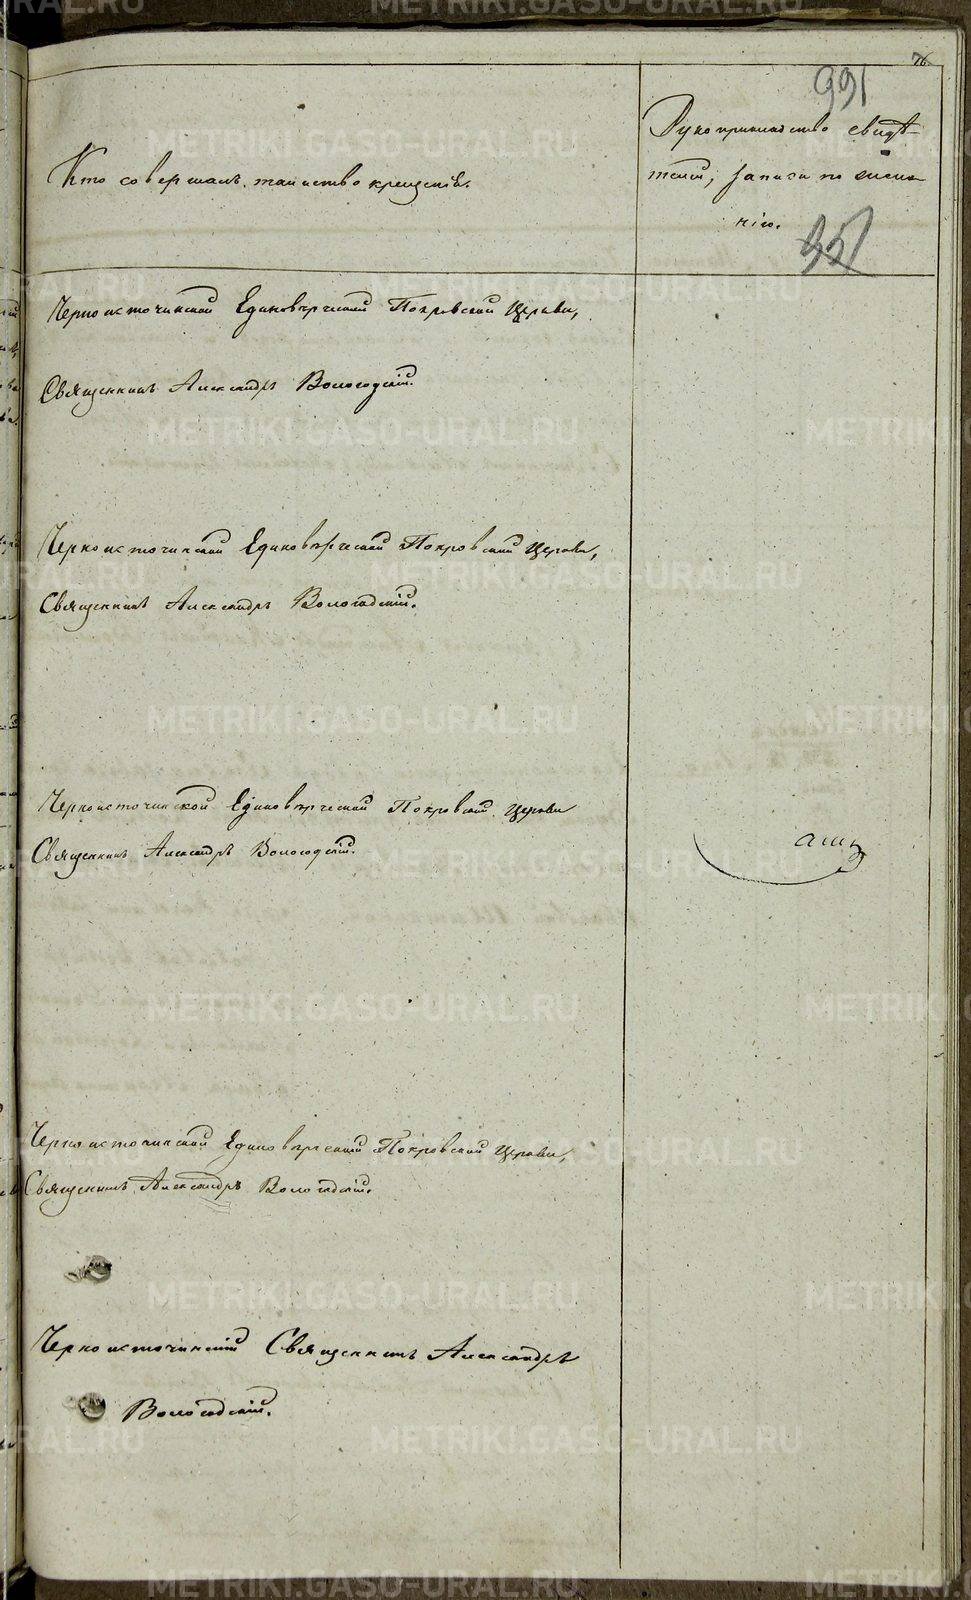 76
991
Кто совершалъ таинство крещенія.
Рукоприкладство свидѣ-
телей, записи по жела-
нію.
Черноисточинской Единовѣрческой Покровской Церкви,
Священникъ Александръ Вологодскій.
Черноисточинской Единовѣрческой Покровской Церкви,
Священникъ Александръ Вологодскій.
Черноисточинской Единовѣрческой Покровской Церкви
Священникъ Александръ Вологодскій.
Черноисточинской Единовѣрческой Покровской Церкви,
Священникъ Александръ Вологодскій.
Черноисточинскій Священникъ Александръ
Вологодскій.
METRIKI.GASO-URAL.RU